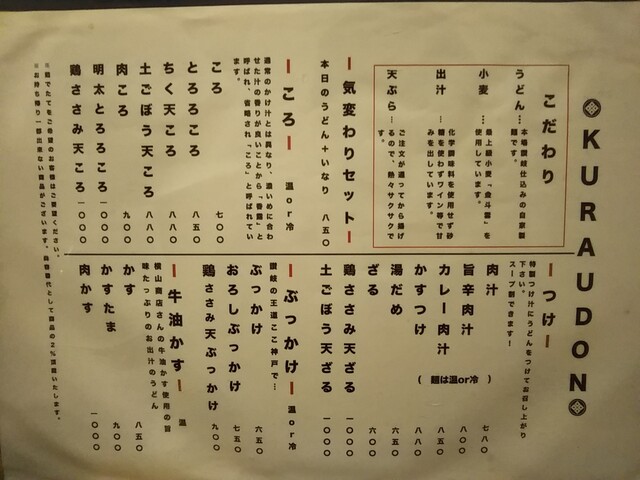 KURAUDON
こだわり
うどん…本場讃岐仕込みの自家製
麺です。
小麦…最上級小麦「金斗雲」を
使用しています。
出汁ー化学調味料を使用せず砂
糖を使わずワイン等で甘
みを出しています。
天ぷらーご注文が通ってから揚げ
るので、熱々サクサクで
す。
ー気変わりセットー
本日のうどん+いなり 八五〇
ーころー 温or冷
通常のかけ汁とは異なり、濃いめに合わ
せた汁の香りが良いことから「香露」と
呼ばれ、省略され「ころ」と呼ばれてい
ます。
ころ 七〇〇
とろろころ 八五〇
ちく天ころ 八八〇
土ごぼう天ころ 八八〇
肉ころ 九〇〇
明太とろろころ 一〇〇〇
鶏ささみ天ころ 一〇〇〇
ーつけー
特製つけ汁にうどんをつけてお召し上がり
下さい。
スープ割できます!
肉汁 七八〇
旨辛肉汁 八〇〇
カレー肉汁 八五〇
かすつけ 八八〇
(麺は温or冷)
湯だめ 六五〇
ざる 六〇〇
鶏ささみ天ざる 一〇〇〇
土ごぼう天ざる 一〇〇〇
ーぶっかけー 温or冷
讃岐の王道ここ神戸で…
ぶっかけ 六五〇
おろしぶっかけ 七五〇
鶏ささみ天ぶっかけ 九〇〇
ー牛油かすー 温
横山商店さんの牛油かす使用の旨
味たっぷりのお出汁のうどん
かす 八五〇
かすたま 九〇〇
肉かす 一〇〇〇